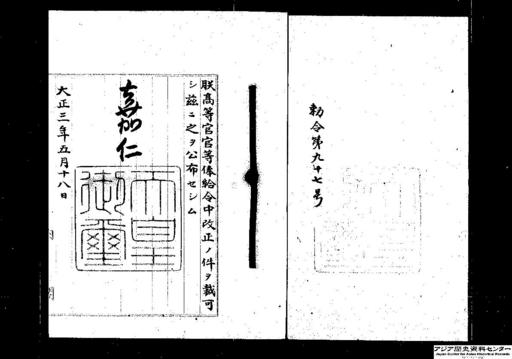 勅令第九十七号
朕高等官官等俸給令中改正ノ件ヲ裁可
シ茲ニ之ヲ公布セシム
嘉仁
天皇御璽
大正三年五月十八日
アジア歴史資料センター
Japan Center for Asian Historical Records